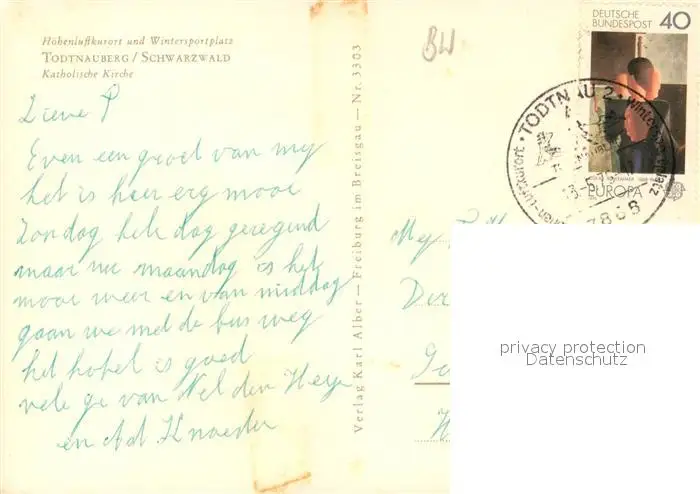 Höhenluftkurort und Wintersportplatz
TODTNAUBERG / SCHWARZWALD
Katholische Kirche
Lieve P
Even een groet van my
het is heer erg mooi
Zondag hele dag geregend
maar nu maandag is het
mooi weer en van middag
gaan we met de bus weg
het hotel is goed
vele gr van Nel den Heyer
en Ad Knoester
Verlag Karl Alber — Freiburg im Breisgau — Nr. 3303
BW
DEUTSCHE
BUNDESPOST 40
EUROPA
TODTNAU 2
7868
Mej
privacy protection
Datenschutz